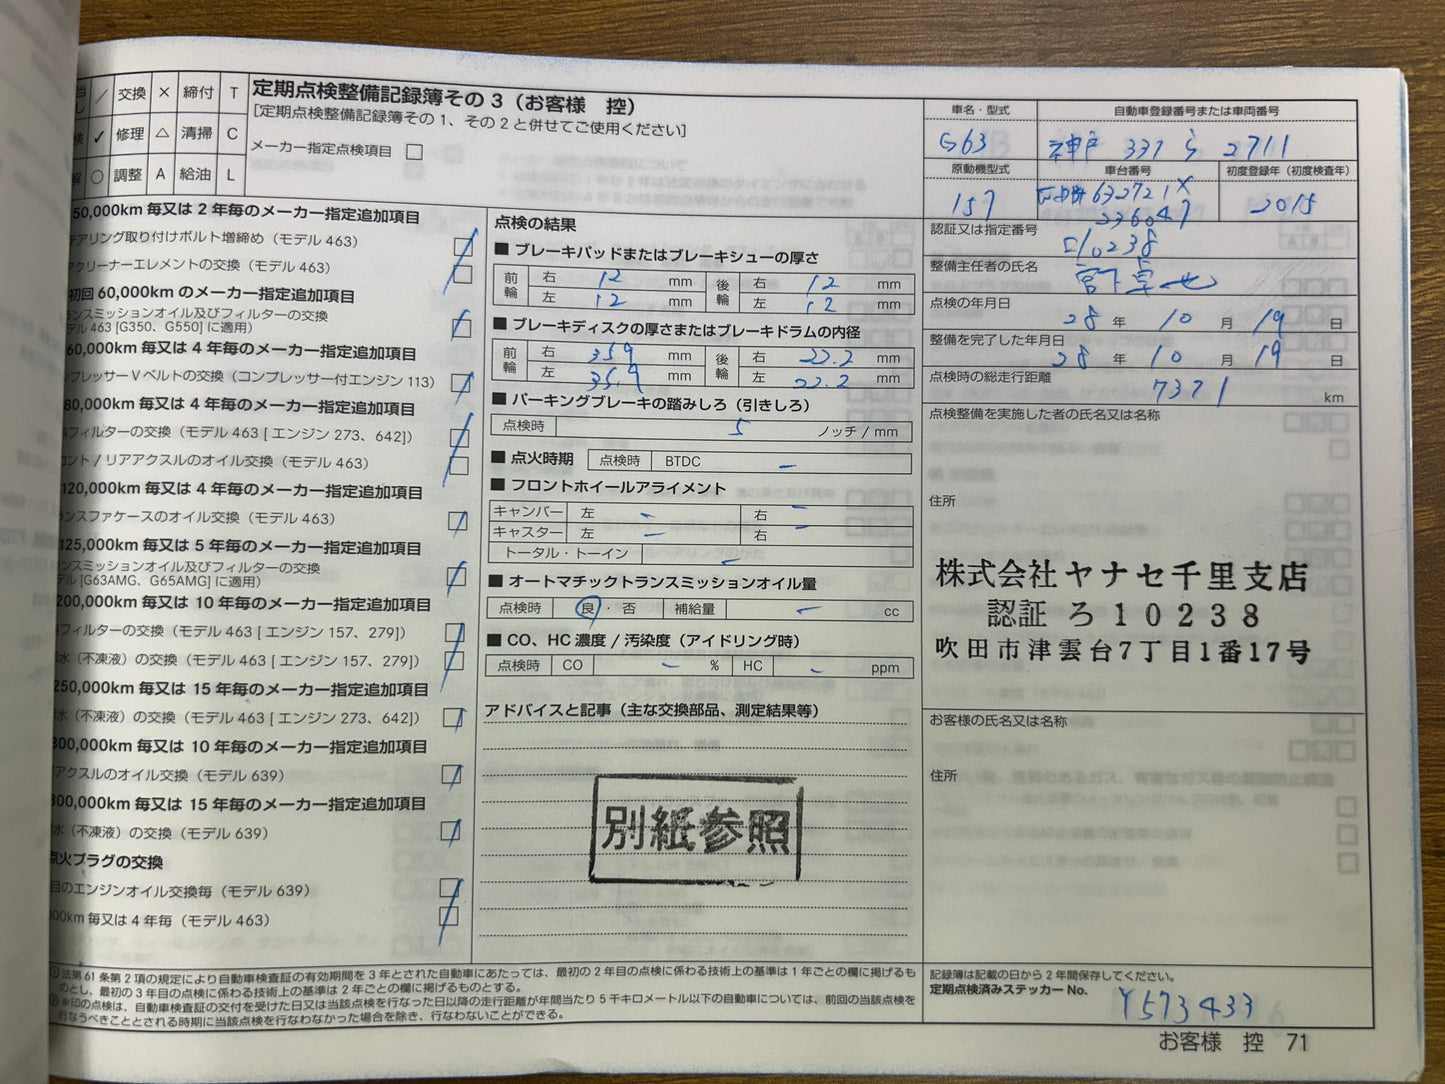 交換 × 締付 T
修理 △ 清掃 C
調整 A 給油 L
定期点検整備記録簿その3（お客様 控）
[定期点検整備記録簿その1、その2と併せてご使用ください]
メーカー指定点検項目 □
50,000km 毎又は 2 年毎のメーカー指定追加項目
テアリング取り付けボルト増締め（モデル 463）
アクリーナーエレメントの交換（モデル 463）
初回 60,000km のメーカー指定追加項目
ンスミッションオイル及びフィルターの交換
デル 463 [G350、G550] に適用）
60,000km 毎又は 4 年毎のメーカー指定追加項目
ンプレッサー V ベルトの交換（コンプレッサー付エンジン 113）
80,000km 毎又は 4 年毎のメーカー指定追加項目
フィルターの交換（モデル 463 [ エンジン 273、642]）
ロント / リアアクスルのオイル交換（モデル 463）
120,000km 毎又は 4 年毎のメーカー指定追加項目
ランスファケースのオイル交換（モデル 463）
125,000km 毎又は 5 年毎のメーカー指定追加項目
ンスミッションオイル及びフィルターの交換
デル [G63AMG、G65AMG] に適用）
200,000km 毎又は 10 年毎のメーカー指定追加項目
フィルターの交換（モデル 463 [ エンジン 157、279]）
水（不凍液）の交換（モデル 463 [ エンジン 157、279]）
250,000km 毎又は 15 年毎のメーカー指定追加項目
水（不凍液）の交換（モデル 463 [ エンジン 273、642]）
300,000km 毎又は 10 年毎のメーカー指定追加項目
アクスルのオイル交換（モデル 639）
300,000km 毎又は 15 年毎のメーカー指定追加項目
水（不凍液）の交換（モデル 639）
点火プラグの交換
目のエンジンオイル交換毎（モデル 639）
000km 毎又は 4 年毎（モデル 463）
点検の結果
■ ブレーキパッドまたはブレーキシューの厚さ
前輪 右 12 mm 後輪 右 12 mm
左 12 mm 左 12 mm
■ ブレーキディスクの厚さまたはブレーキドラムの内径
前輪 右 35.9 mm 後輪 右 22.2 mm
左 35.9 mm 左 22.2 mm
■ パーキングブレーキの踏みしろ（引きしろ）
点検時 5 ノッチ / mm
■ 点火時期 点検時 BTDC －
■ フロントホイールアライメント
キャンバー 左 － 右 －
キャスター 左 － 右 －
トータル・トーイン －
■ オートマチックトランスミッションオイル量
点検時 良・否 補給量 － cc
■ CO、HC 濃度 / 汚染度（アイドリング時）
点検時 CO － % HC － ppm
アドバイスと記事（主な交換部品、測定結果等）
別紙参照
車名・型式 自動車登録番号または車両番号
G63 神戸 331 ら 2711
原動機型式 車台番号 初度登録年（初度検査年）
157 632721X 2015
236047
認証又は指定番号
ろ10238
整備主任者の氏名
点検の年月日
28 年 10 月 19 日
整備を完了した年月日
28 年 10 月 19 日
点検時の総走行距離
7371 km
点検整備を実施した者の氏名又は名称
住所
株式会社ヤナセ千里支店
認証 ろ10238
吹田市津雲台7丁目1番17号
お客様の氏名又は名称
住所
① 法第 61 条第 2 項の規定により自動車検査証の有効期間を 3 年とされた自動車にあたっては、最初の 2 年目の点検に係わる技術上の基準は 1 年ごとの欄に掲げるも
のとし、最初の 3 年目の点検に係わる技術上の基準は 2 年ごとの欄に掲げるものとする。
② ※印の点検は、自動車検査証の交付を受けた日又は当該点検を行なった日以降の走行距離が年間当たり 5 千キロメートル以下の自動車については、前回の当該点検を
行なうべきこととされる時期に当該点検を行なわなかった場合を除き、行なわないことができる。
記録簿は記載の日から 2 年間保存してください。
定期点検済みステッカー No.
Y573433
お客様 控 71